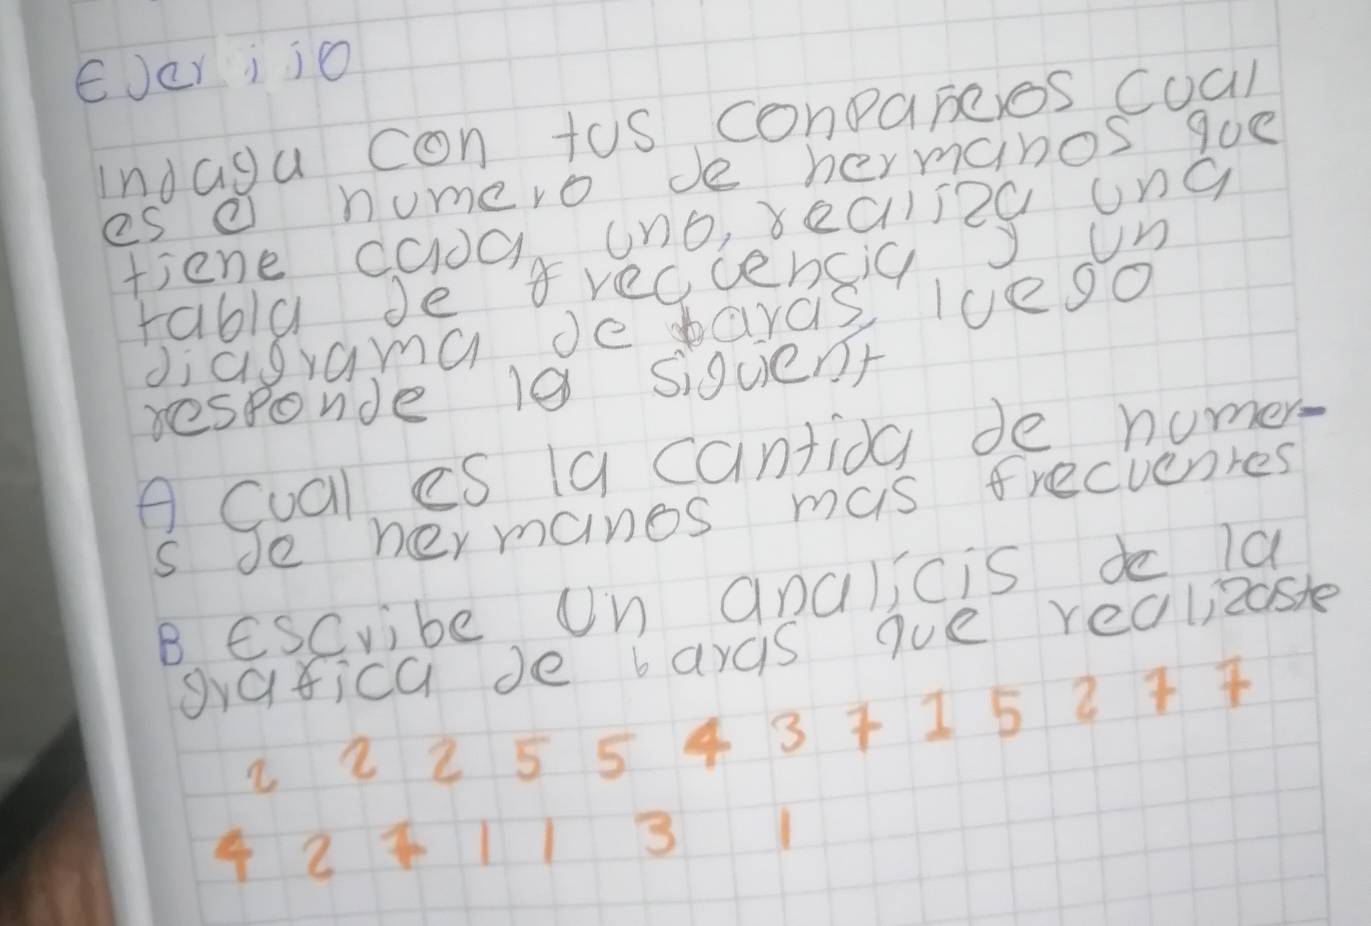 EJerciio
indaga con tus conpañeros cual
es el numero de hermanos que
tiene cada uno, realiza una
tabla de frecuencia y un
diagrama de baras, luego
responde la siguient
A cual es la cantida de numer-
s de hermanos mas frecuentes
B Escribe un analicis de la
grafica de baras que realizaste
2 2 2 5 5 4 3 7 1 5 2 7 7
4 2 7 1 1 3 1